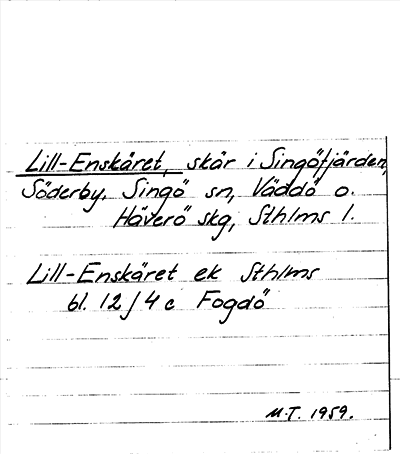 Lill-Enskäret, skär i Singöfjärden,
Söderby. Singö sn, Väddö o.
Häverö skg, Sthlms l.
Lill-Enskäret ek Sthlms
bl. 12/4 c Fogdö
M.T. 1959.